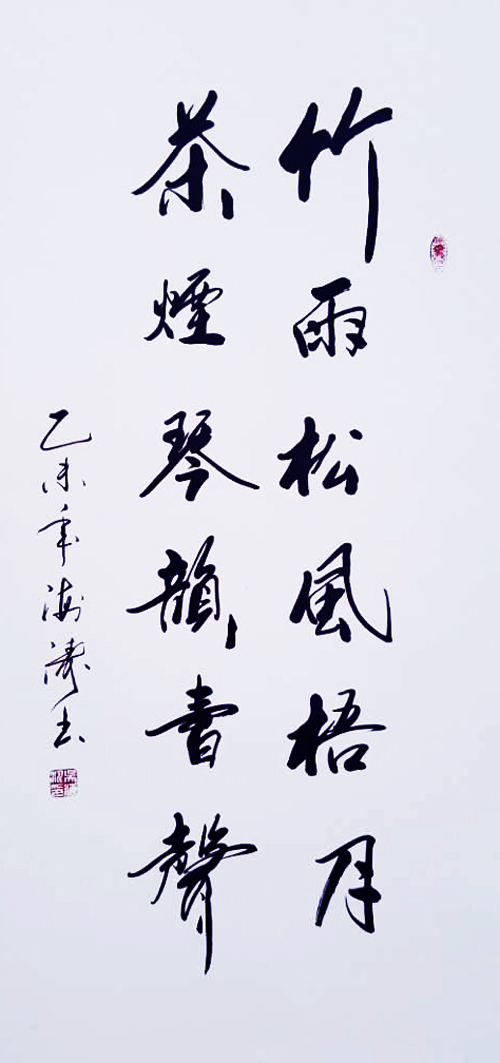 竹雨松風梧月
茶煙琴韻書聲
乙未年海濤书